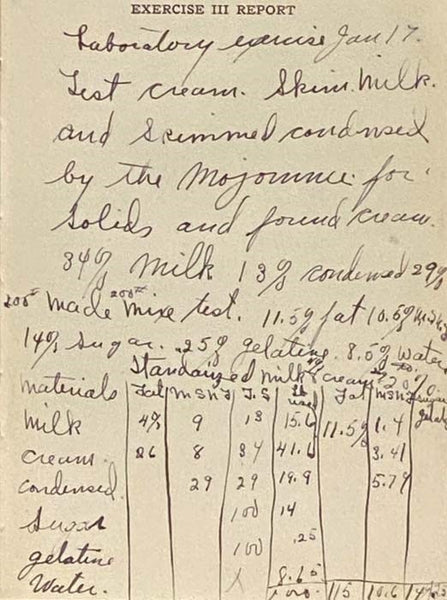 EXERCISE III REPORT
Laboratory exercise Jan 17.
Test cream. Skim Milk.
and skimmed condnsed
by the Mojonnie for
solids and found cream.
34% milk 13% condensed 29%
200# made 200# mixe test. 11.5% fat 10.5% M.S.N.F
14% sugar. .25% gelatine. 8.5% water
Standarized milk & cream to 20%
materials Fat MSNF T.S lb used Fat MSNF sugar gelat
milk 4% 9 13 15.6 11.5% 1.4
cream. 26 8 34 41.6 3.41
condensed. 29 29 19.9 5.79
Sugar 100 14
gelatine 100 .25
Water. X 8.65
115 10.6